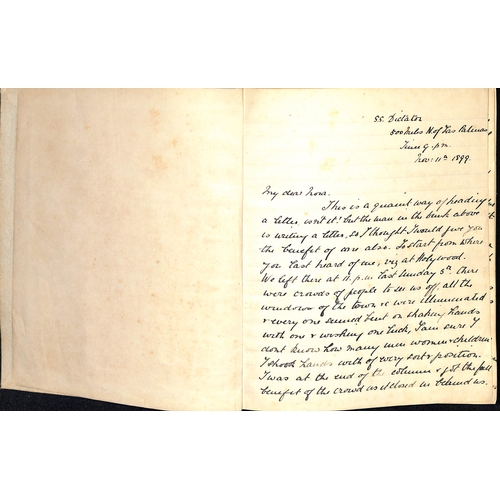 SS. Dictator
500 miles N. of Las Palmas
Time 9. p.m.
Nov: 11th 1899.
My dear Nora.
This is a quaint way of heading
a letter, isn't it! but the man in the bunk above
is writing a letter, so I thought I would give you
the benefit of one also. To start from where
you last heard of me, viz at Holywood.
We left there at 11. p.m. last Sunday 5th. there
were crowds of people to see us off, all the
windows of the town &c were illuminated
& every one seemed bent on shaking hands
with one & wishing one luck, I am sure I
dont know how many men women & children
I shook hands with of every sort & position.
I was at the end of the column & got the full
benefit of the crowd as it closed in behind us.